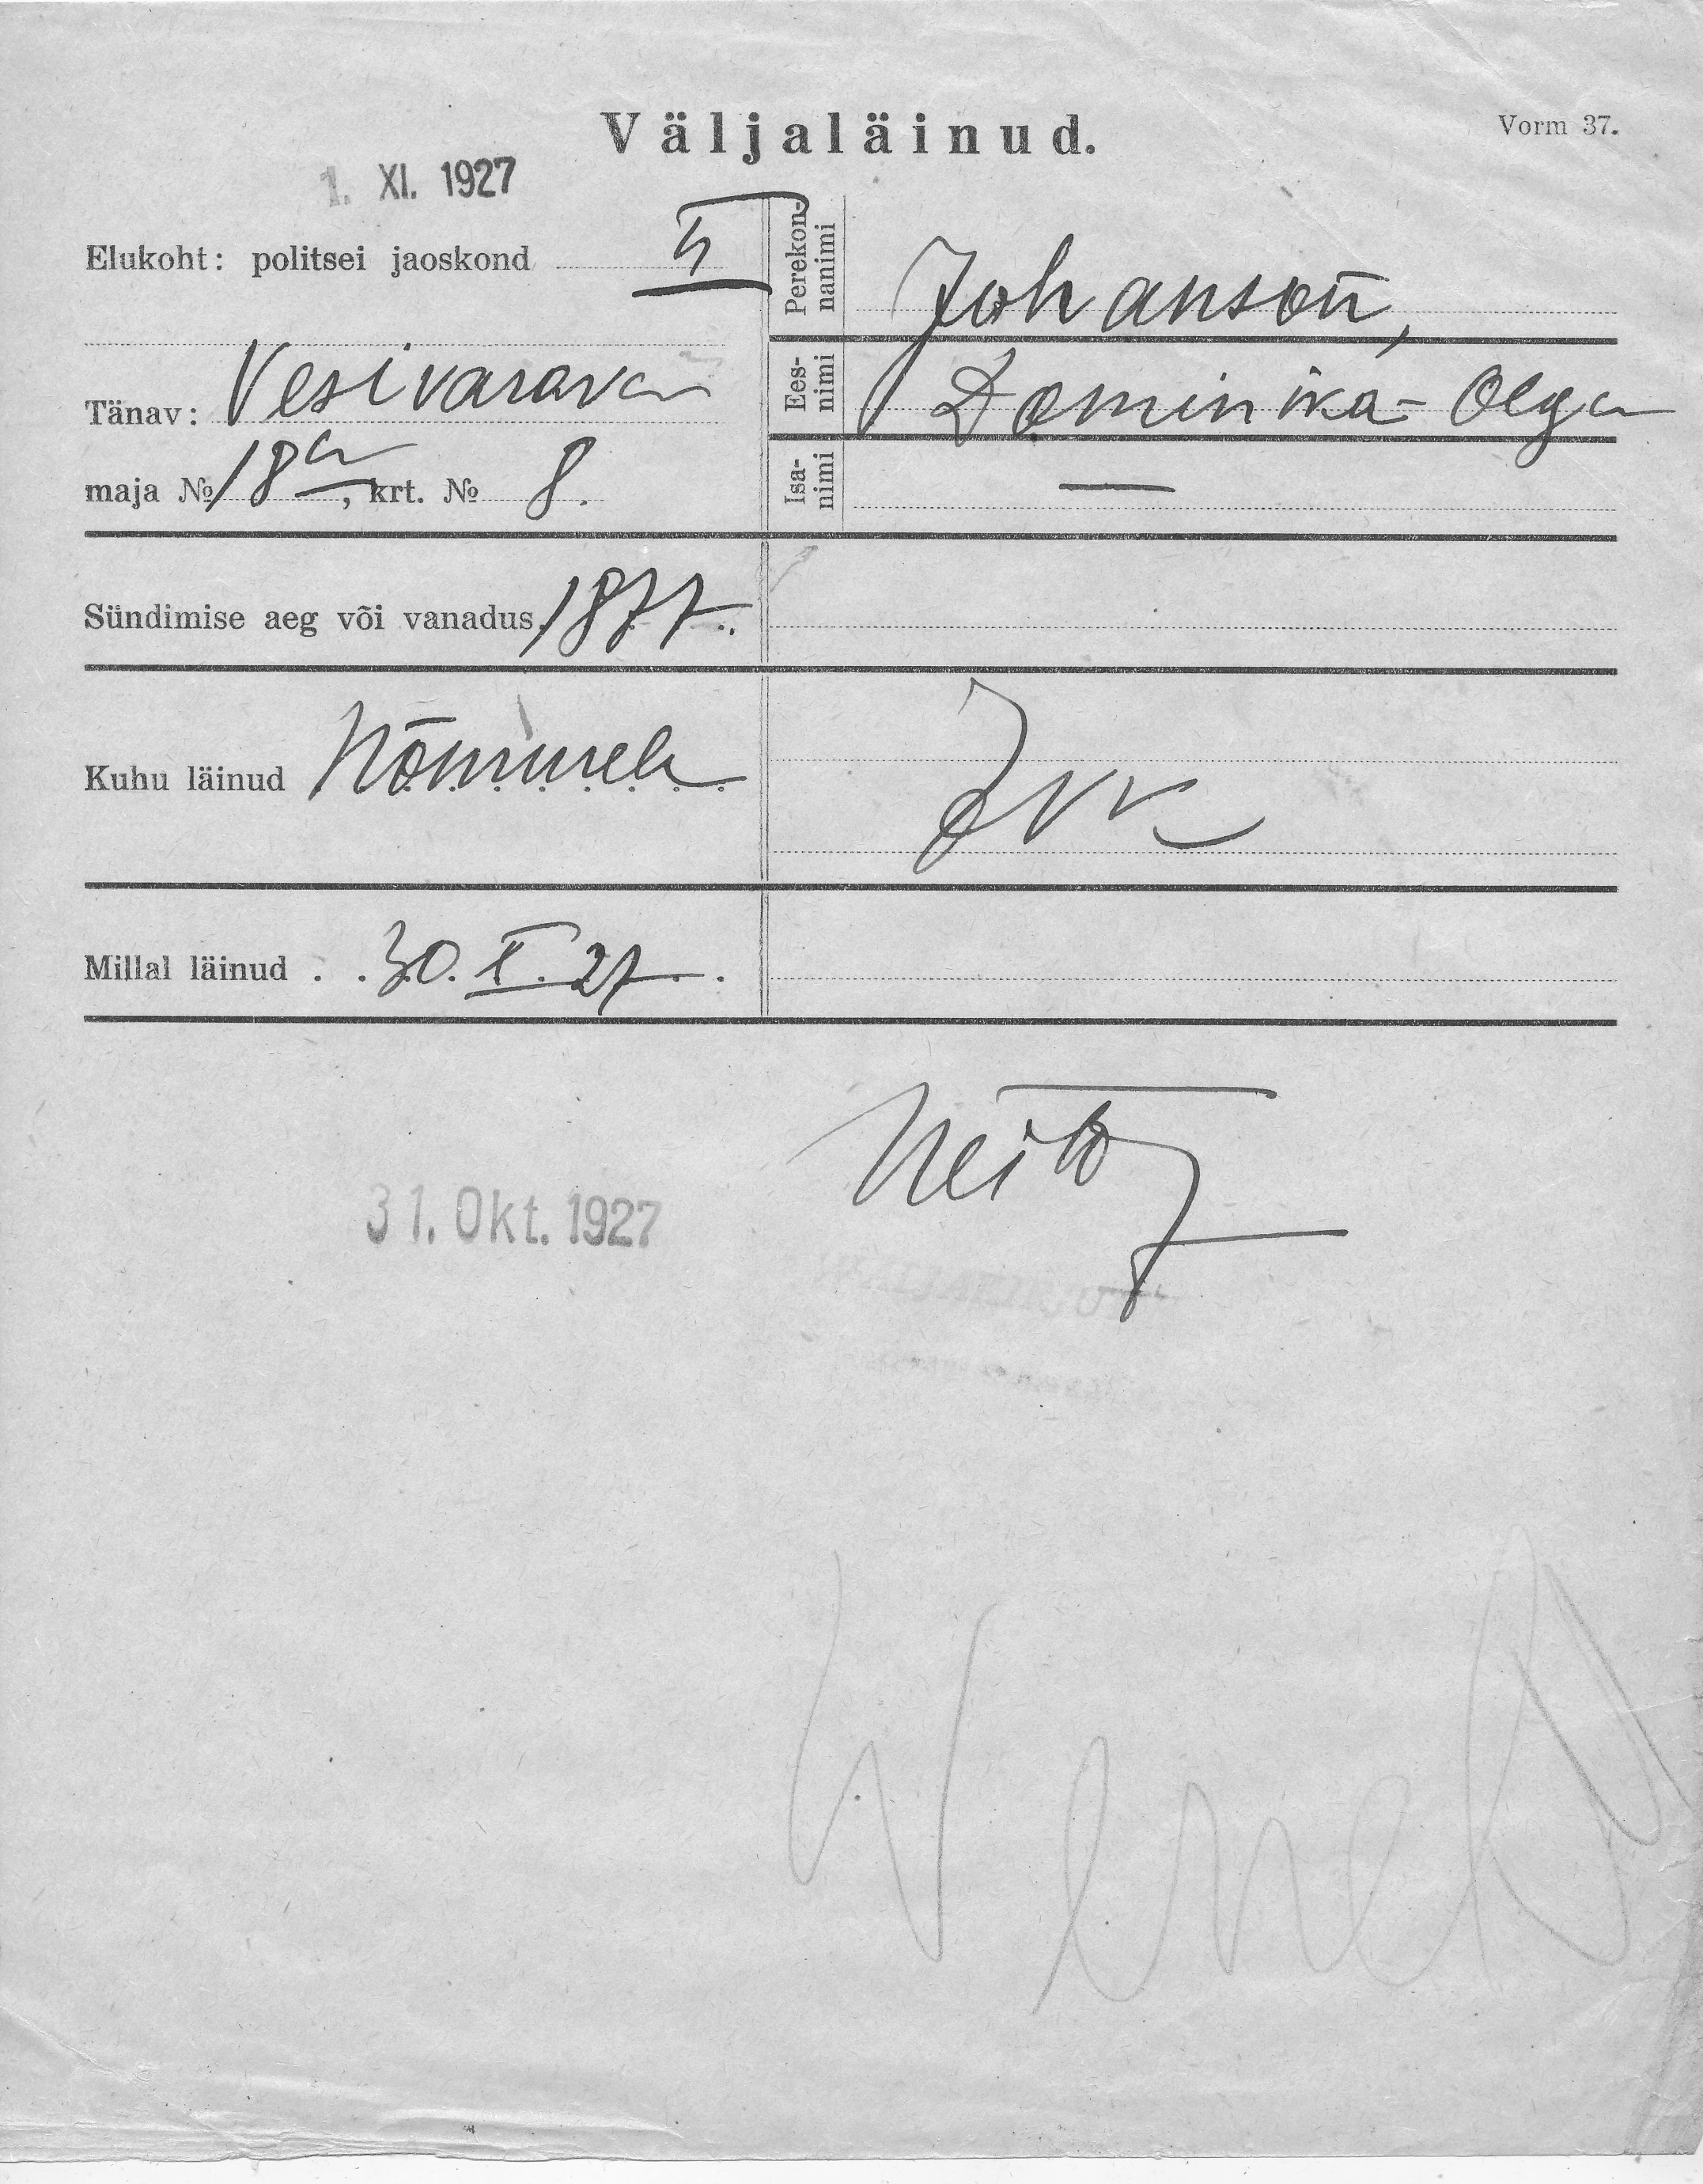 Väljaläinud.
Vorm 37.
1. XI. 1927
Elukoht: politsei jaoskond
Tänav: Vesivärava
maja № 18a, krt. № 8.
Perekonnanimi Johanson,
Eesnimi Dominika-Olga
Isanimi —
Sündimise aeg või vanadus 1877.
Kuhu läinud Nõmmele
Millal läinud 30. X. 27.
31. Okt. 1927